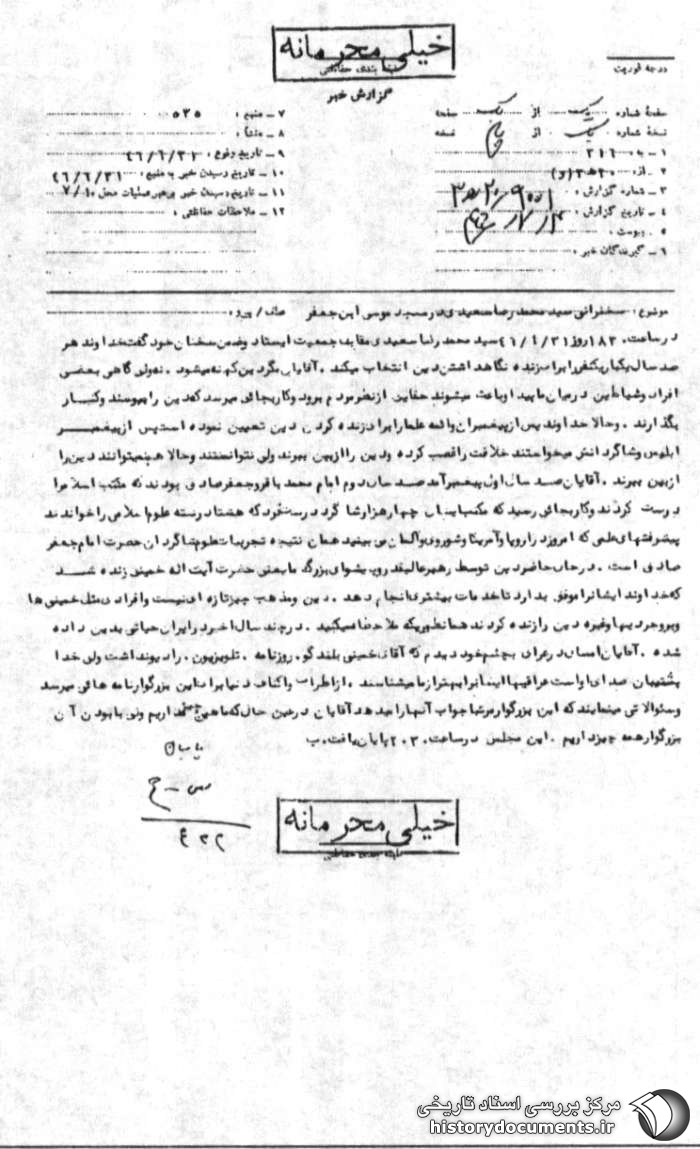 خیلی محرمانه
طبقه بندی حفاظتی
گزارش خبر
درجه فوریت
صفحهٔ شماره : یک از یک صفحه
نسخهٔ شماره : یک از نسخه
۱ ـ به : ۳۱۶
۲ ـ از : ۲۰ ه ۳ (و)
۳ ـ شماره گزارش :
۴ ـ تاریخ گزارش :
۵ ـ پیوست :
۶ ـ گیرندگان خبر :
۷ ـ منبع : ۵۳۵
۸ ـ منشأ :
۹ ـ تاریخ وقوع : ۴۶/۶/۳۱
۱۰ ـ تاریخ رسیدن خبر به منبع : ۴۶/۶/۳۱
۱۱ ـ تاریخ رسیدن خبر برهبر عملیات محل
۱۲ ـ ملاحظات حفاظتی :
موضوع : سخنرانی سید محمد رضا سعیدی در مسجد موسی ابن جعفر
در ساعت روز سید محمد رضا سعیدی مقابل جمعیت ایستاد وضمن سخنان خود گفت خداوند هر
صد سال یکبار یکنفر را برای زنده نگاهداشتن دین انتخاب میکند . آقایان مگر دین کهنه میشود . نه ولی گاهی بعضی
افراد وشیاطین درمیان ما پیدا وباعث میشوند حقایق از نظر مردم برود وکار بجائی میرسد که دین را ببوسند وکنار
بگذارند . وحالا خداوند پس از پیغمبران وائمه علما را برای زنده کردن دین تعیین نموده است پس از پیغمبر
ابلیس وشاگردانش میخواستند خلافت را غصب کرده ودین را ازبین ببرند ولی نتوانستند وحالا هم نمیتوانند دین را
ازبین ببرند . آقایان صد سال اول پیغمبر آمد صد سال دوم امام محمد باقر وجعفر صادق بودند که مکتب اسلام را
درست کردند وکار بجائی رسید که مکتب ایشان چهار هزار شاگرد درست کرد که هشتاد رسته علوم اسلامی را خواندند
پیشرفتهای علمی که امروز در اروپا وآمریکا وشوروی وآلمان می بینید همان نتیجه تجربیات علوم شاگردان حضرت امام جعفر
صادق است . در حال حاضر دین توسط رهبر عالیقدر وپیشوای بزرگ ما یعنی حضرت آیت اله خمینی زنده شد
که خداوند ایشان را موفق بدارد تا خدمات بیشتری انجام دهد . دین ومذهب چیز تازه ای نیست وافرادی مثل خمینی ها
وبروجردیها وغیره دین را زنده کردند همانطوریکه ملاحظه میکنید . در چند سال اخیر در ایران حیاتی بدین داده
شده . آقایان امسال در عراق بچشم خود دیدم که آقای خمینی بلند گو . روزنامه . تلویزیون . رادیو نداشت ولی خدا
پشتیبان صدای اوست عراقیها ایشان را بهتر از ما میشناسند . از اطراف واکناف دنیا برای این بزرگوار نامه هائی میرسد
وسئوالاتی مینمایند که این بزرگوار مرتبا جواب آنها را میدهد آقایان در عین حال که ما هیچ نداریم ولی با بودن آن
بزرگوار همه چیز داریم . این مجلس در ساعت ۲۰۳۰ پایان یافت . ب
خیلی محرمانه
طبقه بندی حفاظتی
مرکز بررسی اسناد تاریخی
historydocuments.ir